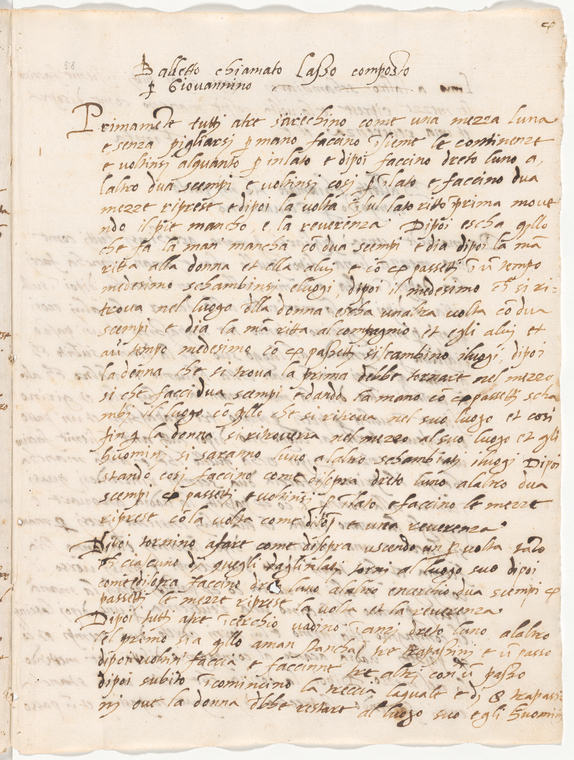 Balletto chiamato Lasso composto
p Giovannino
Primamēte tutti atre sarechino come una mezza luna
e senza pigliarsi p mano faccino īsieme le continenze
e voltinsi alquanto p inlato e dipoi faccino dreto luno a
laltro dua scempi e voltinsi cosi p īlato e faccino dua
mezze riprese e dipoi la volta ī sul lato ritto prima move
ndo il pie mancho e la reverenza Dipoi escha qllo
che fa la man mancha cō dua scempi e dia dipoi la mā
ritta alla donna et ella alui e cō passetti ī ū tempo
medesimo schambinsi eluogi dipoi il medesimo si ri-
trova nel luogo dlla donna escha unaltra volta cō dua
scempi e dia la mā ritta al compagnio et egli alui et
a ū tempo medesimo cō passetti si cambino iluogi dipoi
la donna che si trova la prima debbe tornare nel mezzo
si che facci dua scempi e dando la mano cō passetti scha
mbi il luogo cō qllo che si ritrova nel suo luogo et cosi
fin la donna si ritroverra nel mezzo al suo luogo et gli
huomini si saranno luno alaltro schambiati iluogi Dipoi
stando cosi faccino come disopra dreto luno alaltro dua
scempi passetti e voltinsi p īlato e faccino le mezze
riprese cō la volta come et una reverenza
Dipoi tornino afare come disopra uscendo un p volta
ciascuno di quegli torni al luogo suo dipoi
come disopra faccino dreto luno alaltro dua scempi
passetti le mezze riprese la volta et la reverenza
Dipoi tutti atre ī cerchio vadino dreto luno alaltro
el primo sia qllo aman mancha tre trapassini e ū passo
dipoi voltin faccia e faccinne tre altri con ū passo
dipoi subito īcomincino la treccia laquale e di 8 trapassi
nj ove la donna debbe restare al luogo suo e gli huomini